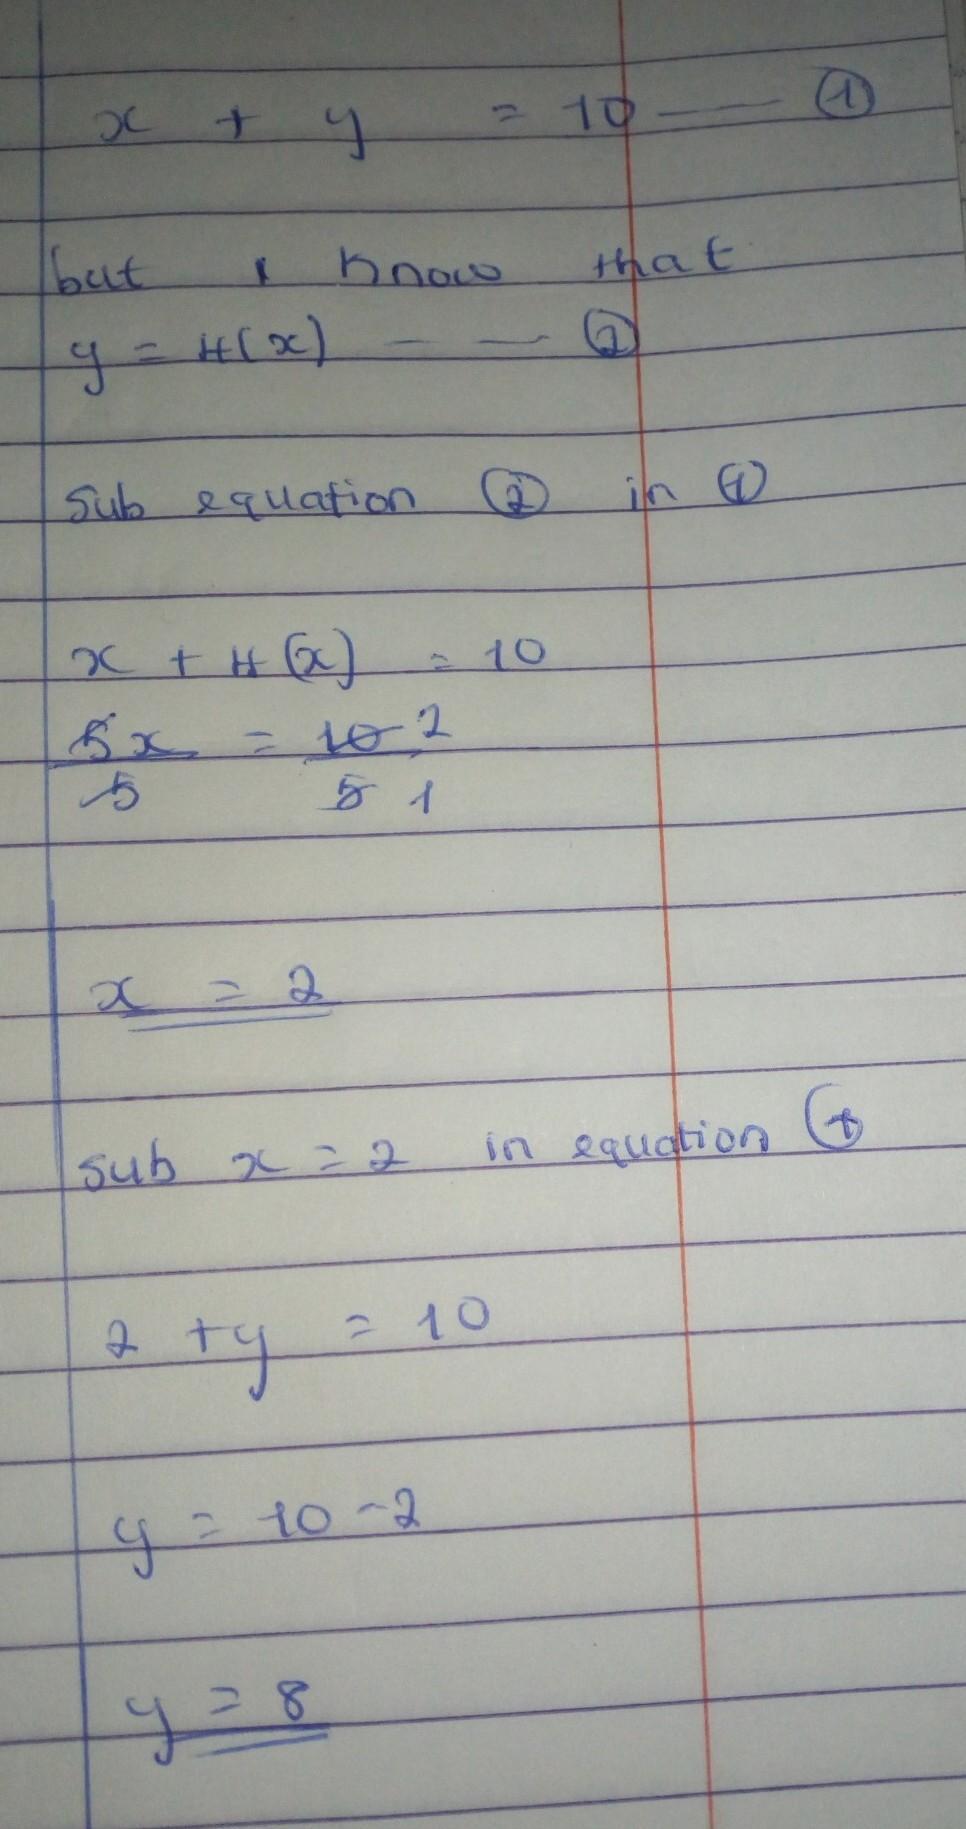 x + y = 10 —— ①
but I know that
y = 4(x) — — ②
Sub equation ② in ①
x + 4(x) = 10
5x = 10 2
5 5 1
x = 2
sub x = 2 in equation ①
2 + y = 10
y = 10 - 2
y = 8